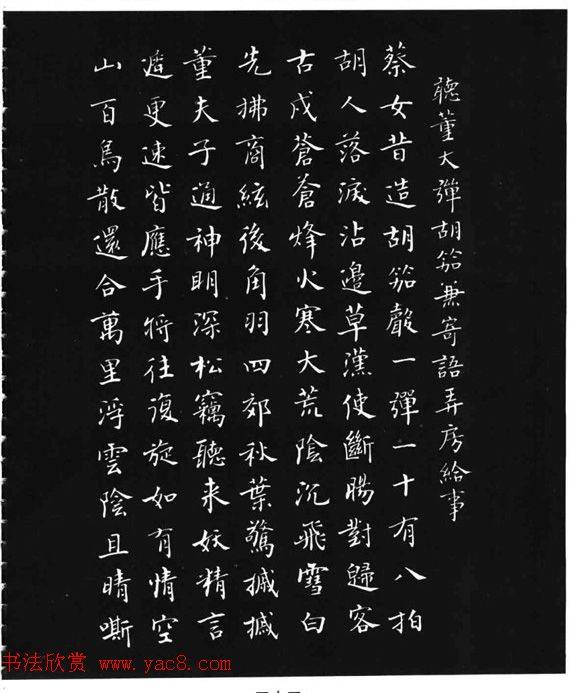 聽董大彈胡笳兼寄語弄房給事
蔡女昔造胡笳聲一彈一十有八拍
胡人落淚沾邊草漢使斷腸對歸客
古戍蒼蒼烽火寒大荒陰沉飛雪白
先拂商絃後角羽四郊秋葉驚摵摵
董夫子通神明深松竊聽来妖精言
遲更速皆應手將往復旋如有情空
山百鳥散還合萬里浮雲陰且晴嘶
书法欣赏 www.yac8.com